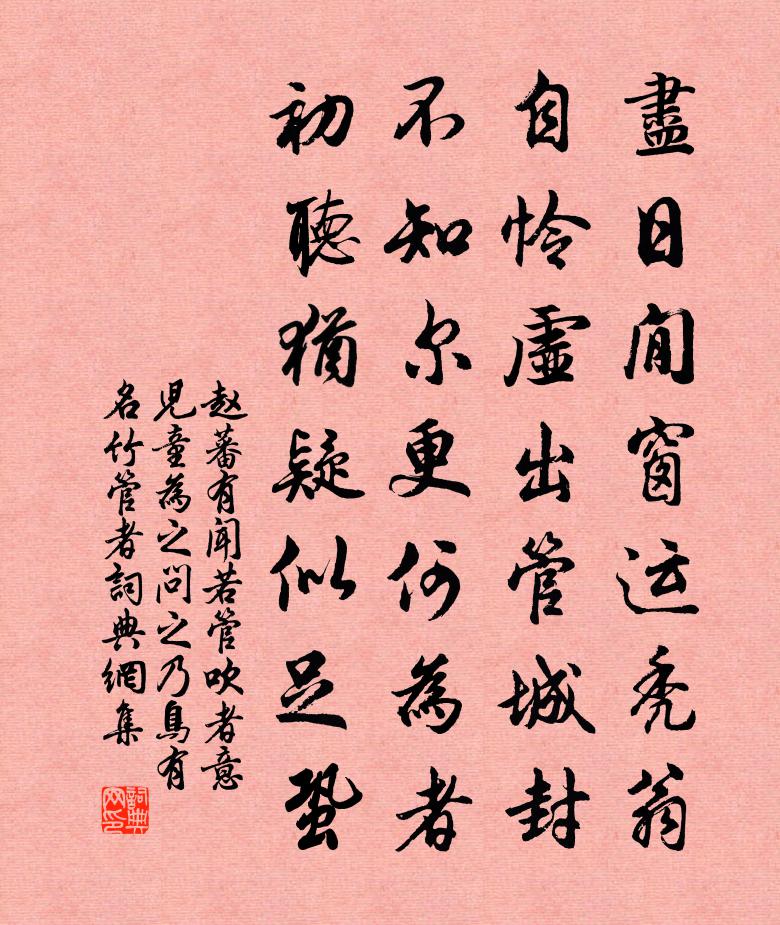 盡日閒窗运禿翁
自怜虛出管城封
不知尔更何為者
初聽猶疑似足蛩
赵蕃有聞若管吹者意
児童為之问之乃鳥有
名竹管者詞典網集
詞典网印